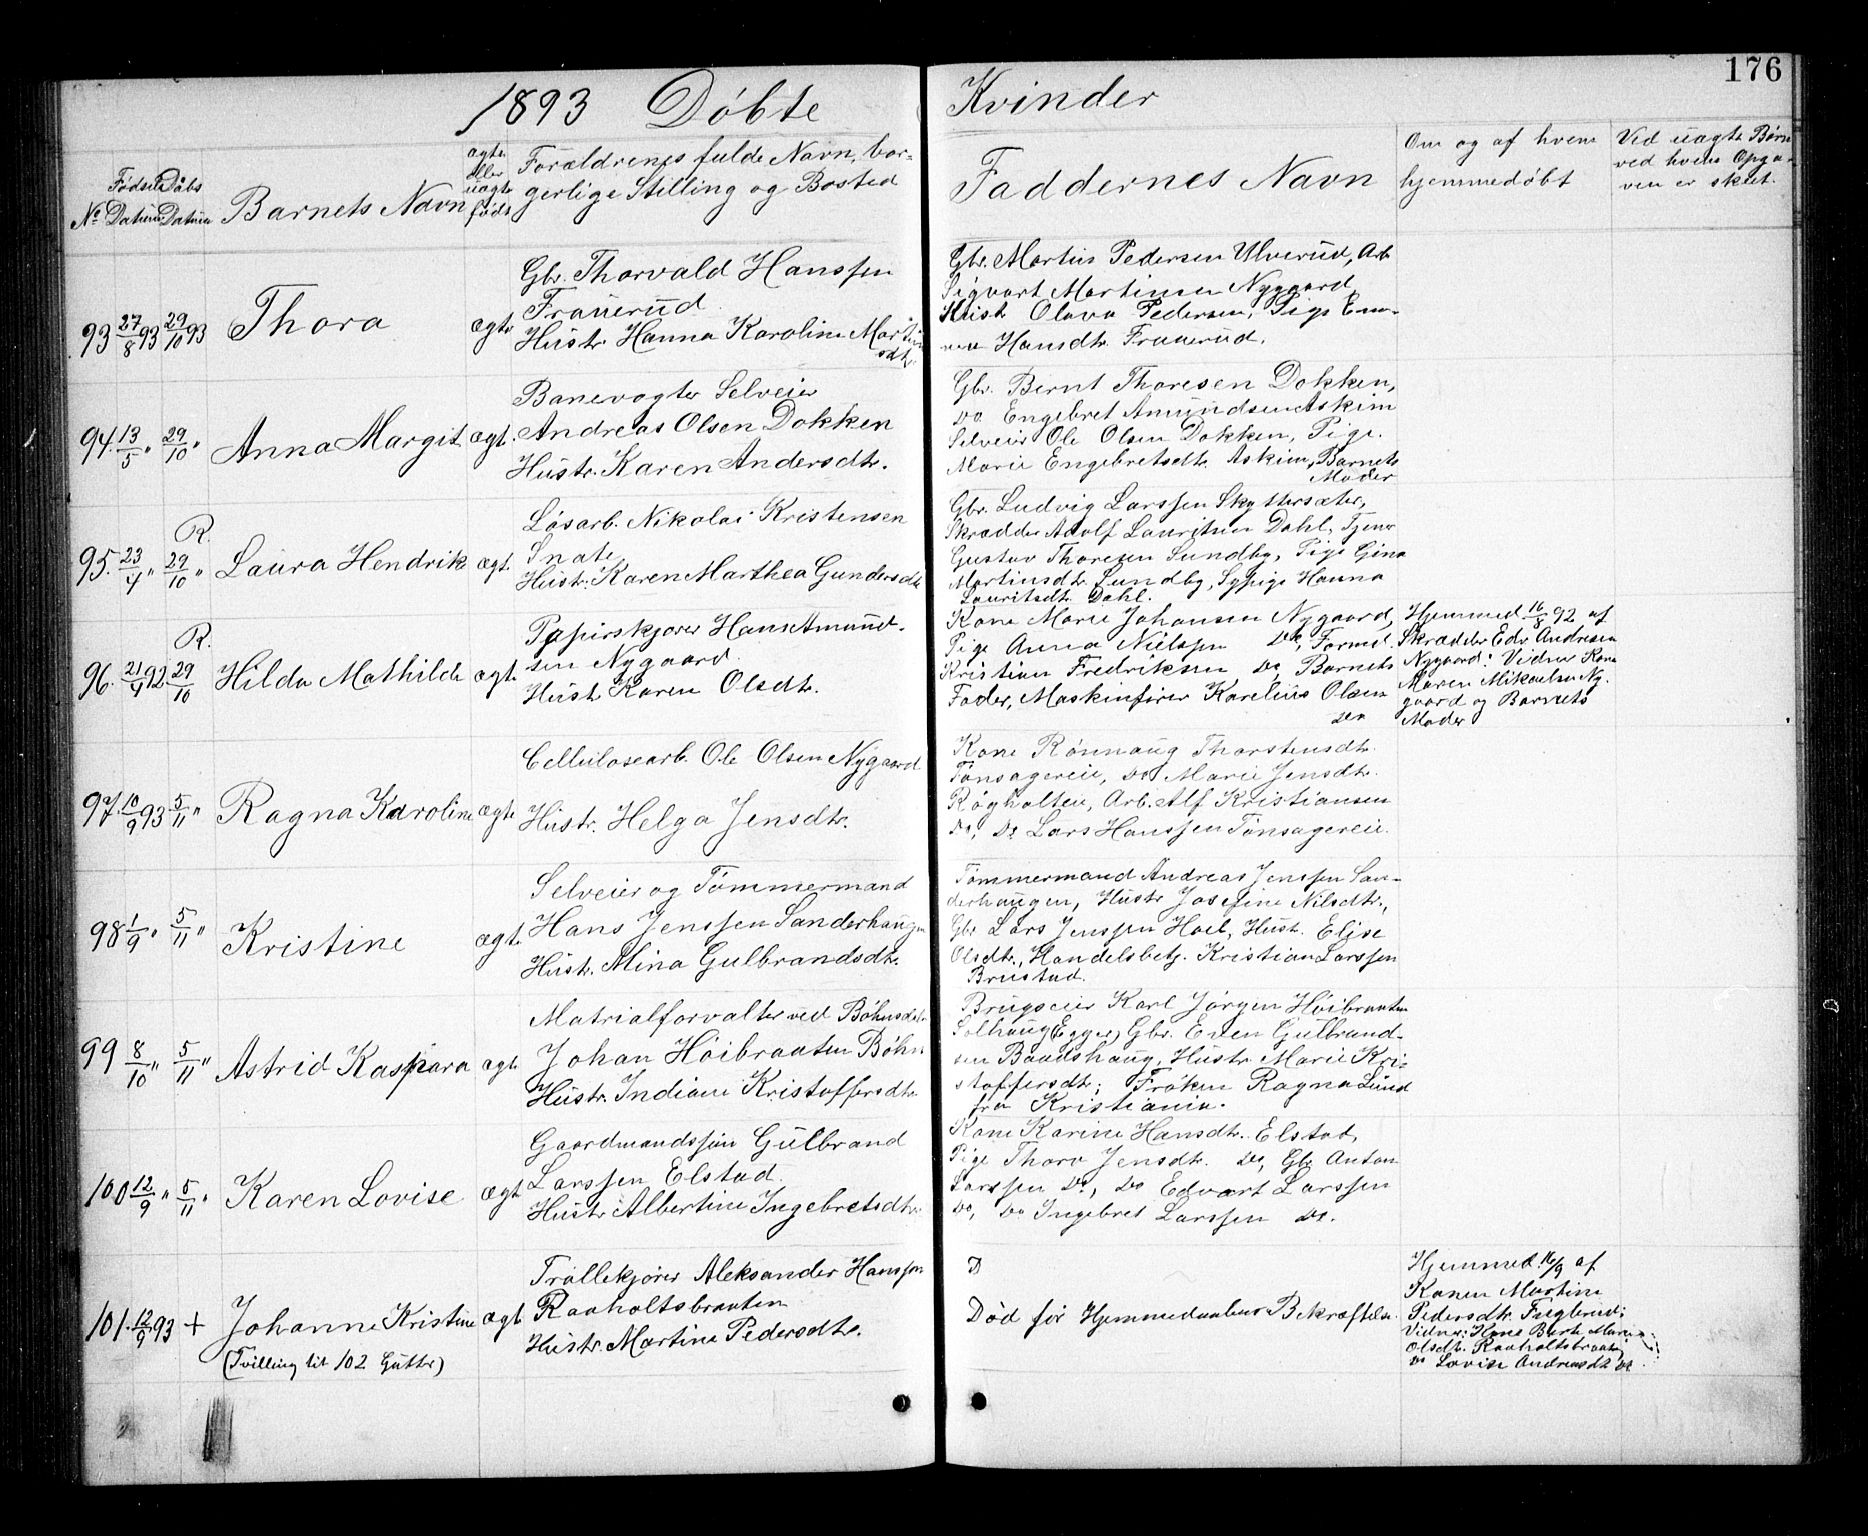 176
1893 Døbte Kvinder
No
Fødsels Datum
Daabs Datum
Barnets Navn
ægte eller uægte født
Forældrenes fulde Navn, bor-
gerlige Stilling og Bosted
Faddernes Navn
Om og af hvem
hjemmedøbt
Ved uægte Børn
ved hvem Opga-
ven er skeet.
93 27/8 93 29/10 93 Thora ægte
Gbr. Thorvald Hanssen
Frauerud
Hustr. Hanna Karoline Martin
sdtr.
Gbr. Martin Pedersen Ulverud, Arb
Sigvart Martinsen Nygaard,
Hustr Olava Pedersen, Pige Em-
Hansdtr. Frauerud.
94. 13/5 " 29/10 " Anna Margit ægt.
Banevogter Selveier
Andreas Olsen Dokken
Hustr. Karen Andersdtr.
Gbr. Bernt Thoresen Dokken,
Do. Engebret Amundsen Askim
Selveier Ole Olsen Dokken, Pige
Marie Engebretsdtr. Askim, Barnets
Moder
R.
95. 23/4 " 29/10 " Laura Hendrik ægt.
Løsarb. Nikolai Kristensen
Snate
Hustr. Karen Marthea Gundersdtr
Gbr. Ludvig Larssen Skyttersæter,
Skrædder Adolf Lauritsen Dahl, Tjener
Gustav Thoresen Sundby, Pige Gina
Martinsdtr. Sundby, Sypige Hanna
Lauritsdtr. Dahl.
R.
96. 21/4 92. 29/10 Hilda Mathilde ægt.
Papirskjører Hans Amund-
sen Nygaard.
Hustr. Karen Olsdtr.
Kone Marie Johansen Nygaard,
Pige Anna Nielssen Do, Formd.
Kristian Fredriksen Do, Barnets
Fader, Maskinfører Karelius Olsen
Do
Hjemmed. 16/8 92 af
Skrædder Edv Andresen
Nygaard: Vidner Kone
Maren Mikaelsen Ny-
gaard og Barnets
Moder
97. 10/9 93 5/11 " Ragna Karoline ægte
Cellulosearb. Ole Olsen Nygaard
Hustr. Helga Jensdtr.
Kone Rønnaug Thorstensdtr.
Tønsagereie, Do Marie Jensdtr.
Røgholteie, Arb. Alf Kristiansen
Do, Do Lars Hanssen Tønsagereie.
98 1/9 " 5/11 " Kristine ægt.
Selveier og Tømmermand
Hans Jenssen Sanderhaugen
Hustr. Mina Gulbrandsdtr.
Tømmermand Andreas Jenssen San-
derhaugen, Hustr Josefine Nilsdtr.,
Gbr Lars Jenssen Hoel, Hustr. Elise
Olsdtr., Handelsbetj. Kristian Larssen
Brustad.
99 8/10 " 5/11 " Astrid Kaspara ægt.
Matrialforvalter ved
Johan Høibraaten Bøhn
Hustr. Indiane Kristoffersdtr.
Brugseier Karl Jørgen Høibraaten
Solhaug (Egge), Gbr. Even Gulbrand-
sen Baadshaug, Hustr Marie Kri-
stoffersdtr; Frøken Ragna Lund
fra Kristiania.
100 12/9 " 5/11 " Karen Lovise ægt
Gaardmandssøn Gulbrand
Larssen Elstad
Hustr Albertine Ingebretsdtr.
Kone Karine Hansdtr. Elstad,
Pige Thora Jensdtr. Do, Gbr Anton
Larssen Do, Do Edvart Larssen
Do, Do Ingebret Larssen Do.
101. 12/9 93 + Johanne Kristine ægt
(Tvilling til 102 Gutter)
Trallekjører Aleksander Hanssen
Raaholtsbraaten
Hustr. Martine Pedersdtr.
D
Død før Hjemmedaabens Bekræftelse.
Hjemmed. 16/9 af
Konen Martine
Pedersdtr. Fuglerud;
Vidner: Kone Berte Marie
Olsdtr. Raaholtsbraaten,
Do Lovise Andreasdtr Do.